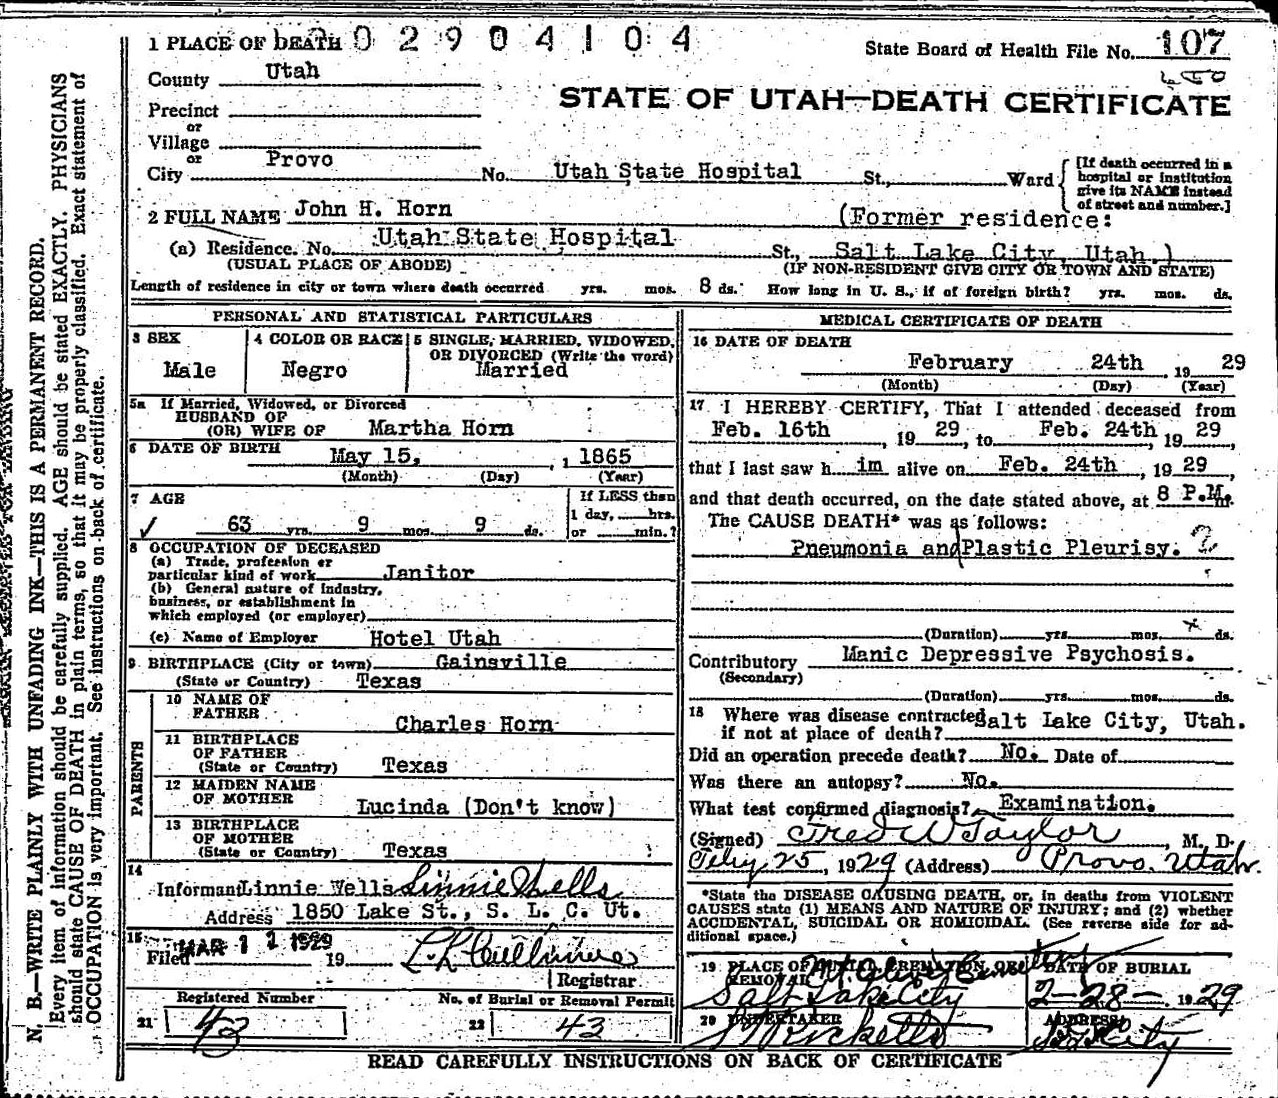 1 PLACE OF DEATH 02904104 State Board of Health File No. 107
County Utah
STATE OF UTAH—DEATH CERTIFICATE
Precinct
or
Village
or
City Provo No. Utah State Hospital St., Ward
[If death occurred in a
hospital or institution
give its NAME instead
of street and number.]
2 FULL NAME John H. Horn (Former residence:
(a) Residence. No. Utah State Hospital St., Salt Lake City, Utah.)
(USUAL PLACE OF ABODE) (IF NON-RESIDENT GIVE CITY OR TOWN AND STATE)
Length of residence in city or town where death occurred yrs. mos. 8 ds. How long in U. S., if of foreign birth? yrs. mos. ds.
PERSONAL AND STATISTICAL PARTICULARS
3 SEX
Male
4 COLOR OR RACE
Negro
5 SINGLE, MARRIED, WIDOWED,
OR DIVORCED (Write the word)
Married
5a If Married, Widowed, or Divorced
HUSBAND OF
(OR) WIFE OF Martha Horn
6 DATE OF BIRTH May 15, , 1865
(Month) (Day) (Year)
7 AGE
63 yrs. 9 mos. 9 ds.
If LESS than
1 day, hrs.
or min.?
8 OCCUPATION OF DECEASED
(a) Trade, profession or
particular kind of work Janitor
(b) General nature of industry,
business, or establishment in
which employed (or employer)
(c) Name of Employer Hotel Utah
9 BIRTHPLACE (City or town) Gainsville
(State or Country) Texas
PARENTS
10 NAME OF
FATHER Charles Horn
11 BIRTHPLACE
OF FATHER
(State or Country) Texas
12 MAIDEN NAME
OF MOTHER Lucinda (Don't know)
13 BIRTHPLACE
OF MOTHER
(State or Country) Texas
14
Informant Linnie Wells Linnie Wells
Address 1850 Lake St., S. L. C. Ut.
15 MAR 12 1929
Filed 19
Registrar
Registered Number
21 43
No. of Burial or Removal Permit
22 43
MEDICAL CERTIFICATE OF DEATH
16 DATE OF DEATH
February 24th , 19 29
(Month) (Day) (Year)
17 I HEREBY CERTIFY, That I attended deceased from
Feb. 16th , 19 29 , to Feb. 24th , 19 29 ,
that I last saw h im alive on Feb. 24th , 19 29
and that death occurred, on the date stated above, at 8 P.M. m.
The CAUSE DEATH* was as follows:
Pneumonia and Plastic Pleurisy. ?
(Duration) yrs. mos. ds.
Contributory Manic Depressive Psychosis.
(Secondary)
(Duration) yrs. mos. ds.
18 Where was disease contracted Salt Lake City, Utah.
if not at place of death?
Did an operation precede death? No. Date of
Was there an autopsy? No.
What test confirmed diagnosis? Examination.
(Signed) Fred W Taylor , M. D.
Feby 25, 1929 (Address) Provo. Utah.
*State the DISEASE CAUSING DEATH, or, in deaths from VIOLENT
CAUSES state (1) MEANS AND NATURE OF INJURY; and (2) whether
ACCIDENTAL, SUICIDAL OR HOMICIDAL. (See reverse side for ad-
ditional space.)
19 PLACE OF BURIAL, CREMATION, OR
REMOVAL Mt Olivet Cemetery
Salt Lake City
DATE OF BURIAL
2-28- 1929
20 UNDERTAKER
ADDRESS
City
READ CAREFULLY INSTRUCTIONS ON BACK OF CERTIFICATE
N. B.—WRITE PLAINLY WITH UNFADING INK—THIS IS A PERMANENT RECORD.
Every item of information should be carefully supplied. AGE should be stated EXACTLY. PHYSICIANS
should state CAUSE OF DEATH in plain terms, so that it may be properly classified. Exact statement of
OCCUPATION is very important. See instructions on back of certificate.